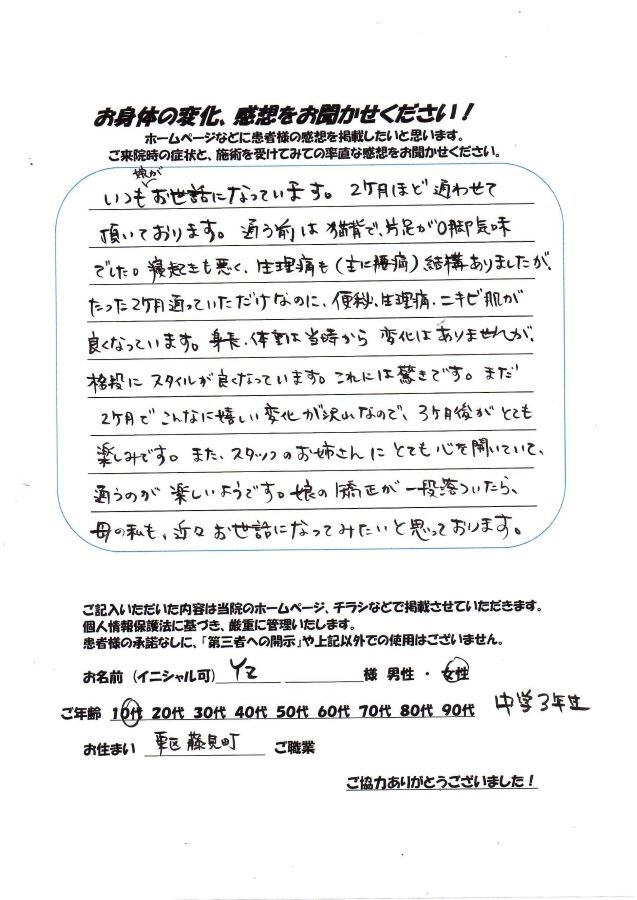 お身体の変化、感想をお聞かせください！
ホームページなどに患者様の感想を掲載したいと思います。
ご来院時の症状と、施術を受けてみての率直な感想をお聞かせください。
娘が
いつもお世話になっています。2ヶ月ほど通わせて
頂いております。通う前は猫背で、片足がO脚気味
でした。寝起きも悪く、生理痛も(主に腰痛)結構ありましたが、
たった2ヶ月通っていただけなのに、便秘、生理痛、ニキビ肌が
良くなっています。身長、体重は当時から変化はありませんが、
格段にスタイルが良くなっています。これには驚きです。まだ
2ヶ月でこんなに嬉しい変化が沢山なので、3ヶ月後がとても
楽しみです。また、スタッフのお姉さんにとても心を開いていて、
通うのが楽しいようです。娘の矯正が一段落ついたら、
母の私も、近々お世話になってみたいと思っております。
ご記入いただいた内容は当院のホームページ、チラシなどで掲載させていただきます。
個人情報保護法に基づき、厳重に管理いたします。
患者様の承諾なしに、「第三者への開示」や上記以外での使用はございません。
お名前（イニシャル可） YZ 様 男性 ・ 女性
ご年齢 10代 20代 30代 40代 50代 60代 70代 80代 90代 中学3年生
お住まい 東区藤見町 ご職業
ご協力ありがとうございました！